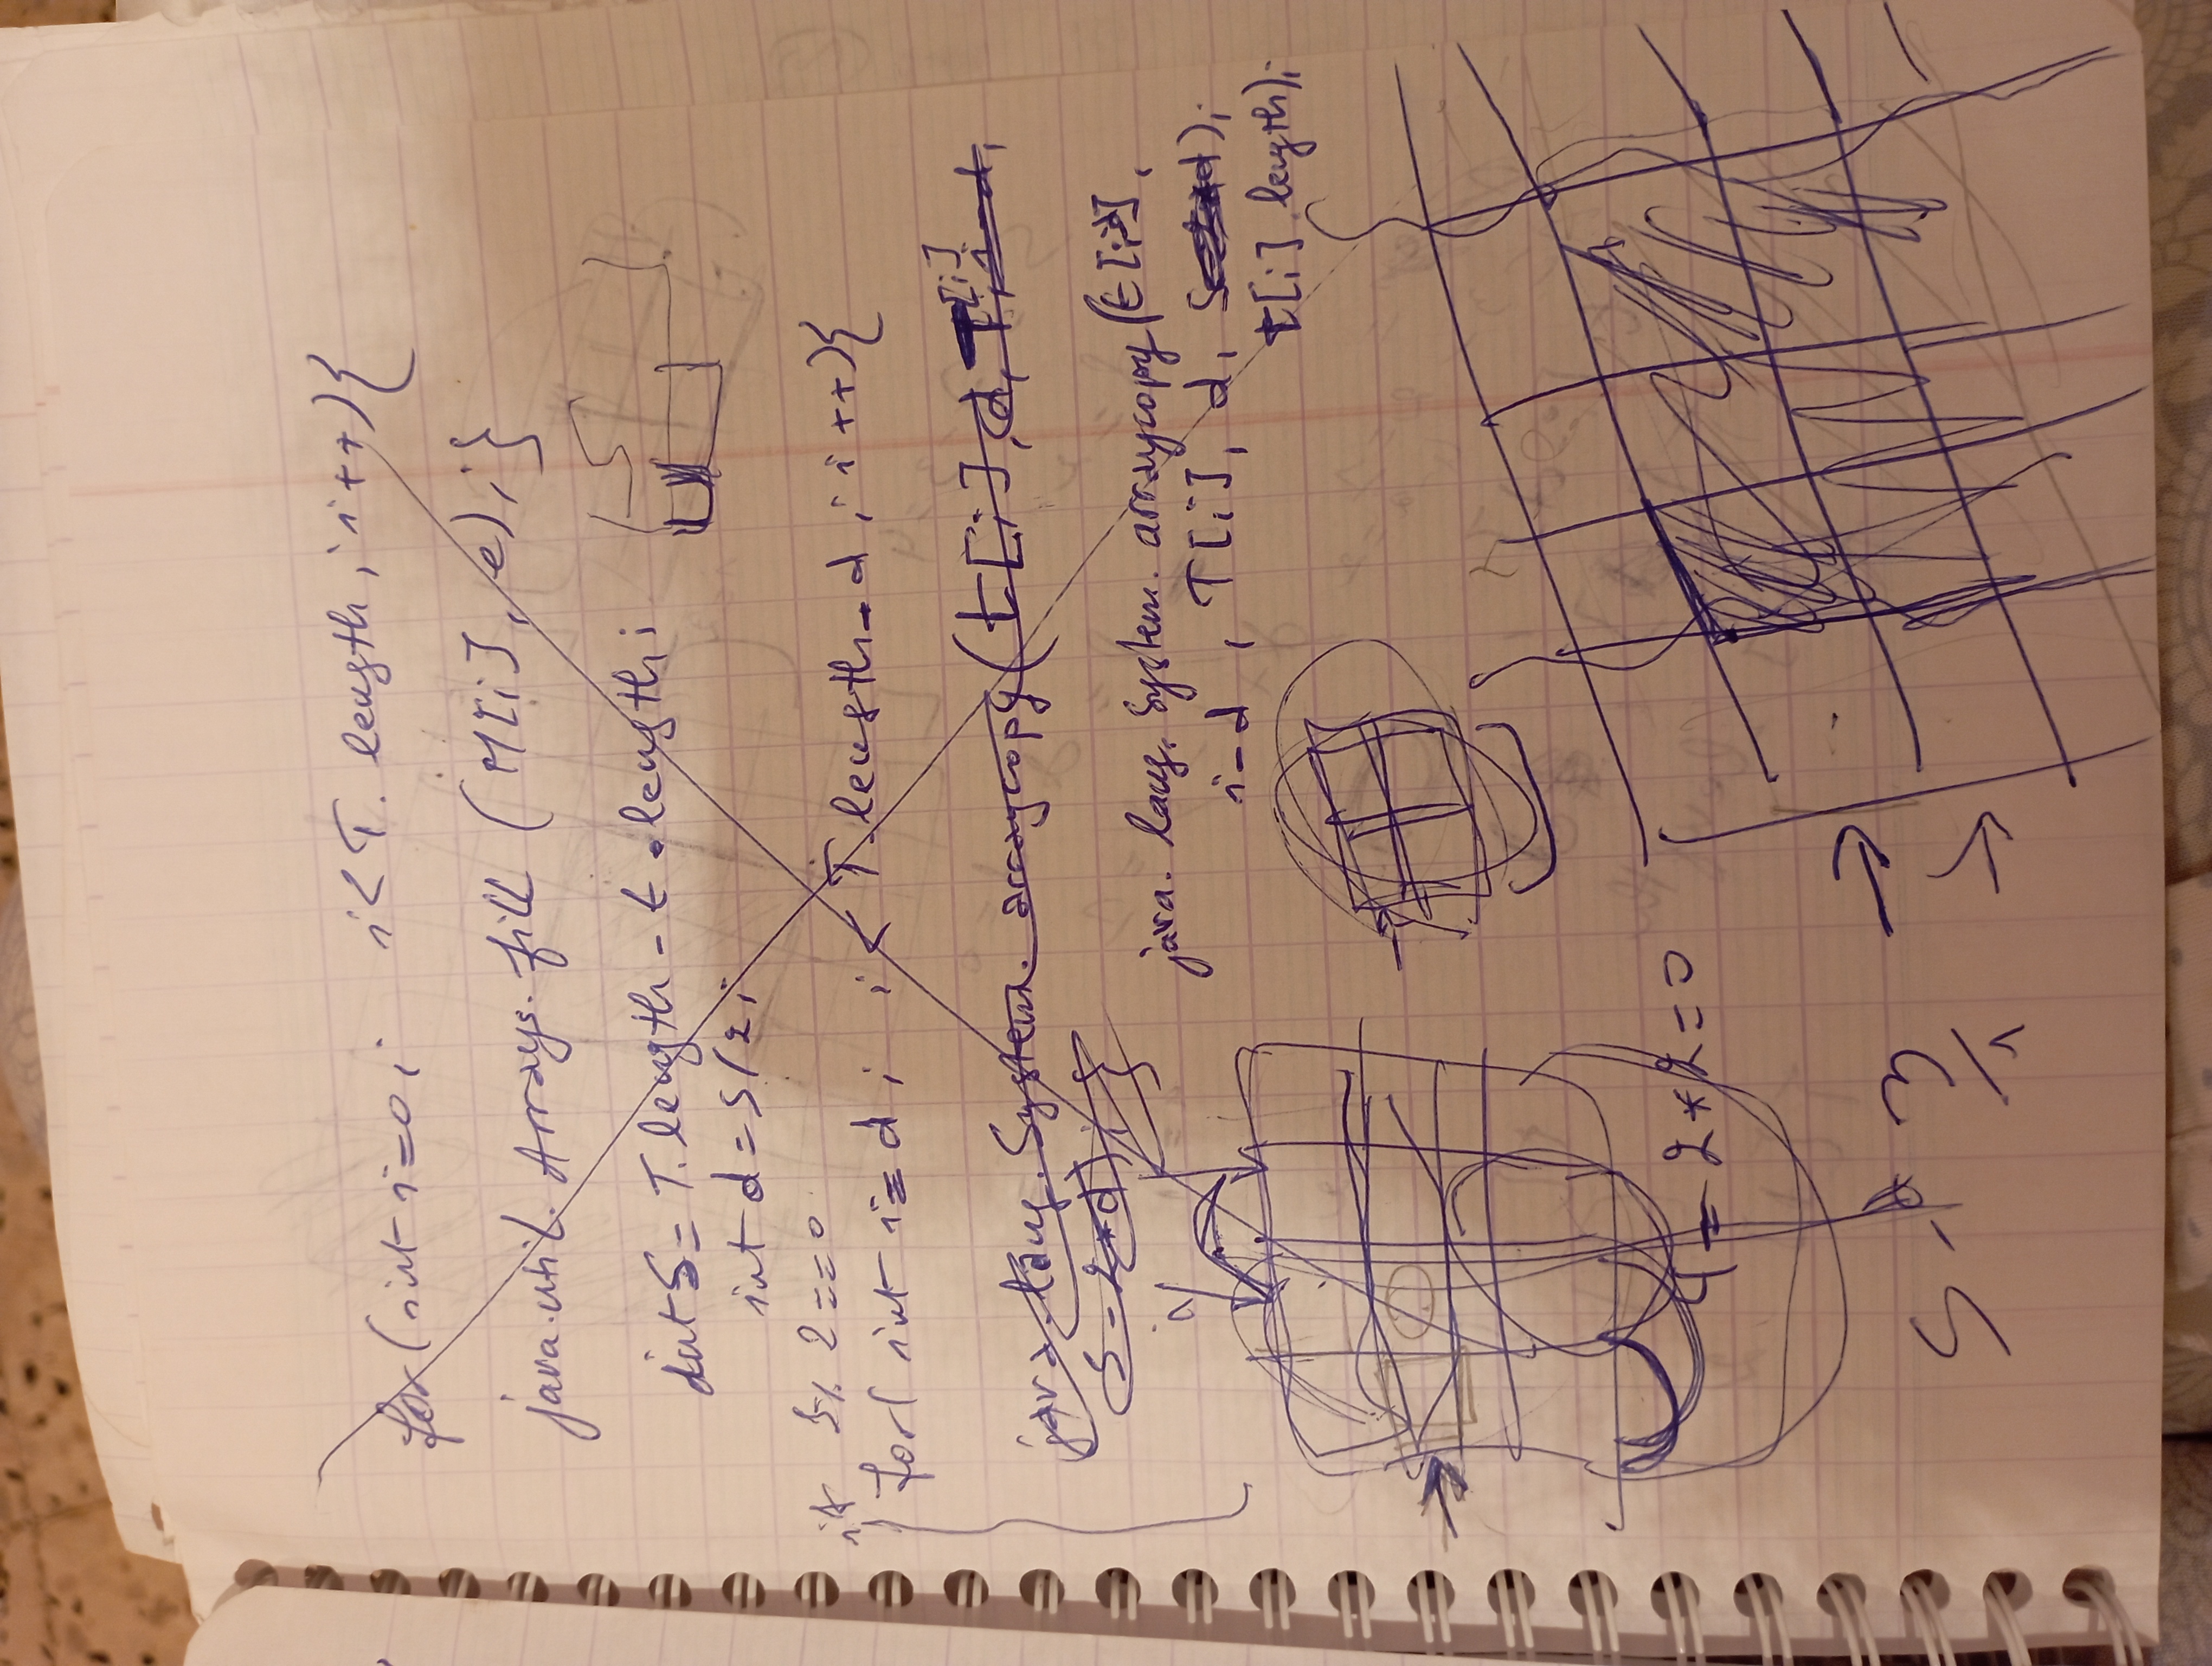 for(int i=0; i<T.length; i++){
java.util.Arrays.fill(M[i], e);}
int S= T.length - t.length;
S
int d=S/2;
if S% 2==0
for( int i=d; i< T.length-d; i++){
java.lang.System.arraycopy(t[i], d, T[i], i-d,
S-2*d);}
java.lang.System.arraycopy(t[i-d],
i-d, T[i], d,
t[i].length);
i
4-2*2=0
S-d 3
/1